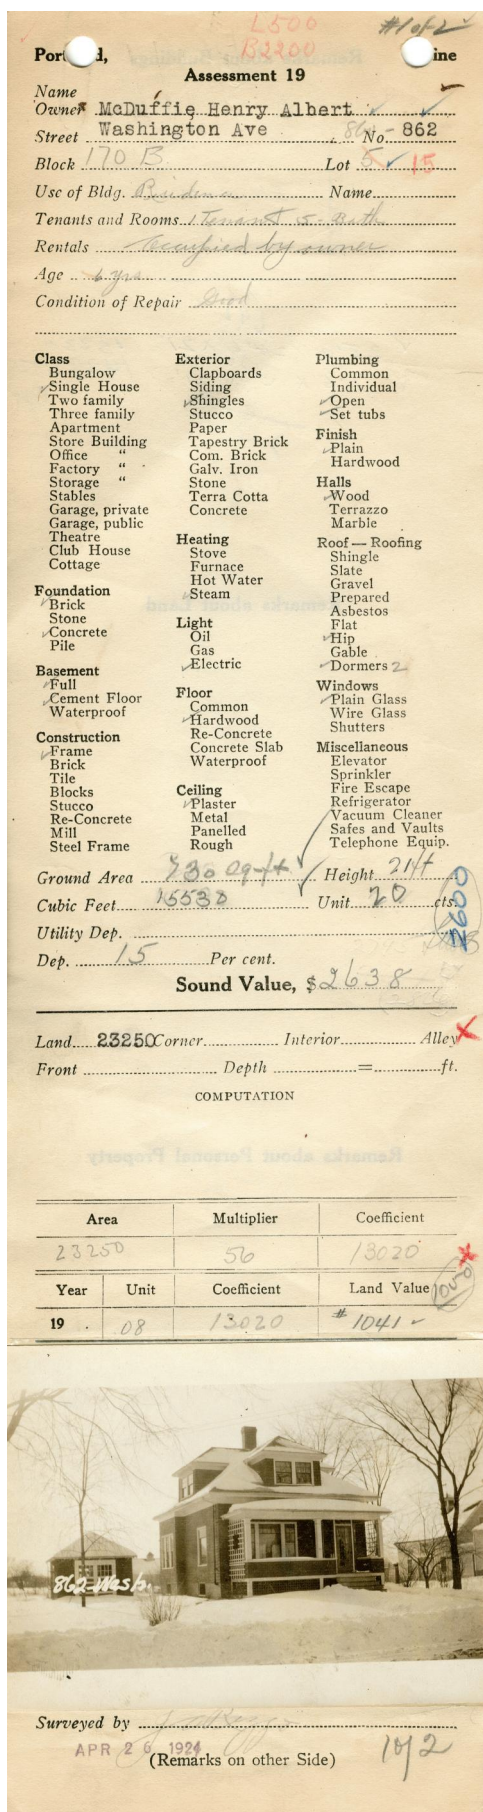 L500
#1 of 2 ✓
B2200
Portland, Maine
Assessment 19
Name
Owner McDuffie Henry Albert
Street Washington Ave No. 862
Block 170 B Lot 5 ✓ 15
Use of Bldg. Residence Name
Tenants and Rooms 1 Tenant 5 - Bath
Rentals Occupied by owner
Age 6 yrs
Condition of Repair Good
Class
Bungalow
✓Single House
Two family
Three family
Apartment
Store Building
Office "
Factory "
Storage "
Stables
Garage, private
Garage, public
Theatre
Club House
Cottage
Foundation
✓Brick
Stone
✓Concrete
Pile
Basement
✓Full
✓Cement Floor
Waterproof
Construction
✓Frame
Brick
Tile
Blocks
Stucco
Re-Concrete
Mill
Steel Frame
Exterior
Clapboards
Siding
✓Shingles
Stucco
Paper
Tapestry Brick
Com. Brick
Galv. Iron
Stone
Terra Cotta
Concrete
Heating
Stove
Furnace
Hot Water
✓Steam
Light
Oil
Gas
✓Electric
Floor
Common
✓Hardwood
Re-Concrete
Concrete Slab
Waterproof
Ceiling
✓Plaster
Metal
Panelled
Rough
Plumbing
Common
Individual
✓Open
✓Set tubs
Finish
✓Plain
Hardwood
Halls
✓Wood
Terrazzo
Marble
Roof — Roofing
Shingle
Slate
Gravel
Prepared
Asbestos
Flat
✓Hip
Gable
✓Dormers 2
Windows
✓Plain Glass
Wire Glass
Shutters
Miscellaneous
Elevator
Sprinkler
Fire Escape
Refrigerator
Vacuum Cleaner
Safes and Vaults
Telephone Equip.
Ground Area 730 sq-ft ✓ Height 21ft
Cubic Feet 15530 ✓ Unit 20 cts.
2600
Utility Dep.
Dep. 15 Per cent.
Sound Value, $2638
Land 23250 Corner Interior Alley
Front Depth = ft.
COMPUTATION
Area Multiplier Coefficient
23250 56 13020
1050
Year Unit Coefficient Land Value
19 .08 13020 #1041 ✓
862-Wash.
Surveyed by
APR 26 1924
(Remarks on other Side)
1 of 2